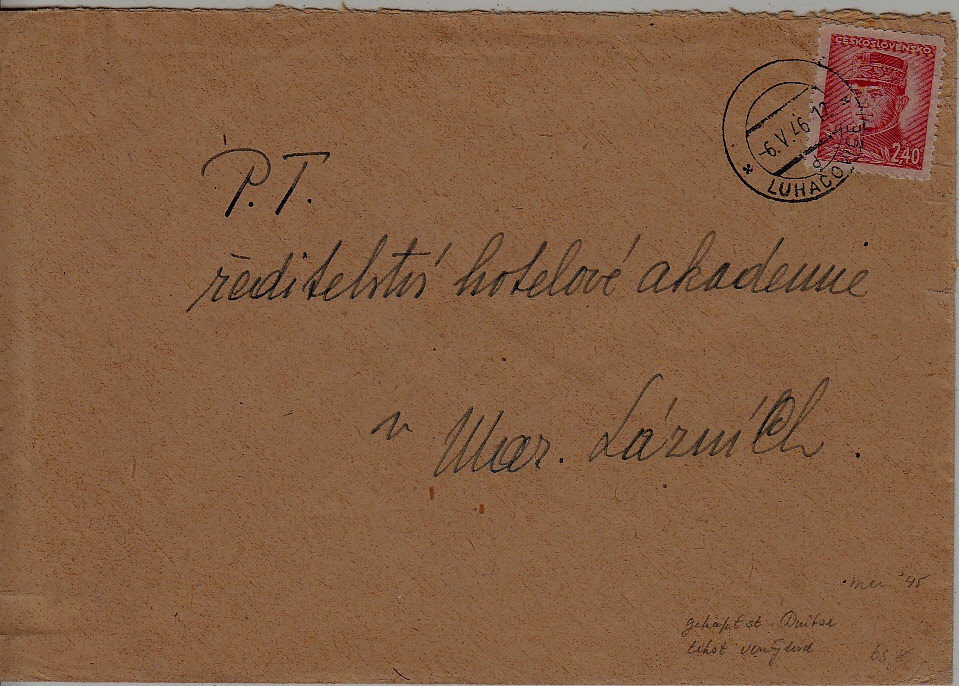 ČESKOSLOVENSKO
2.40
-6.V.46-12
LUHAČOVICE
P.T.
ředitelství hotelové akademie
v Mar. Lázních.
mei '45
gekapt st. Duitse
tekst verwijderd